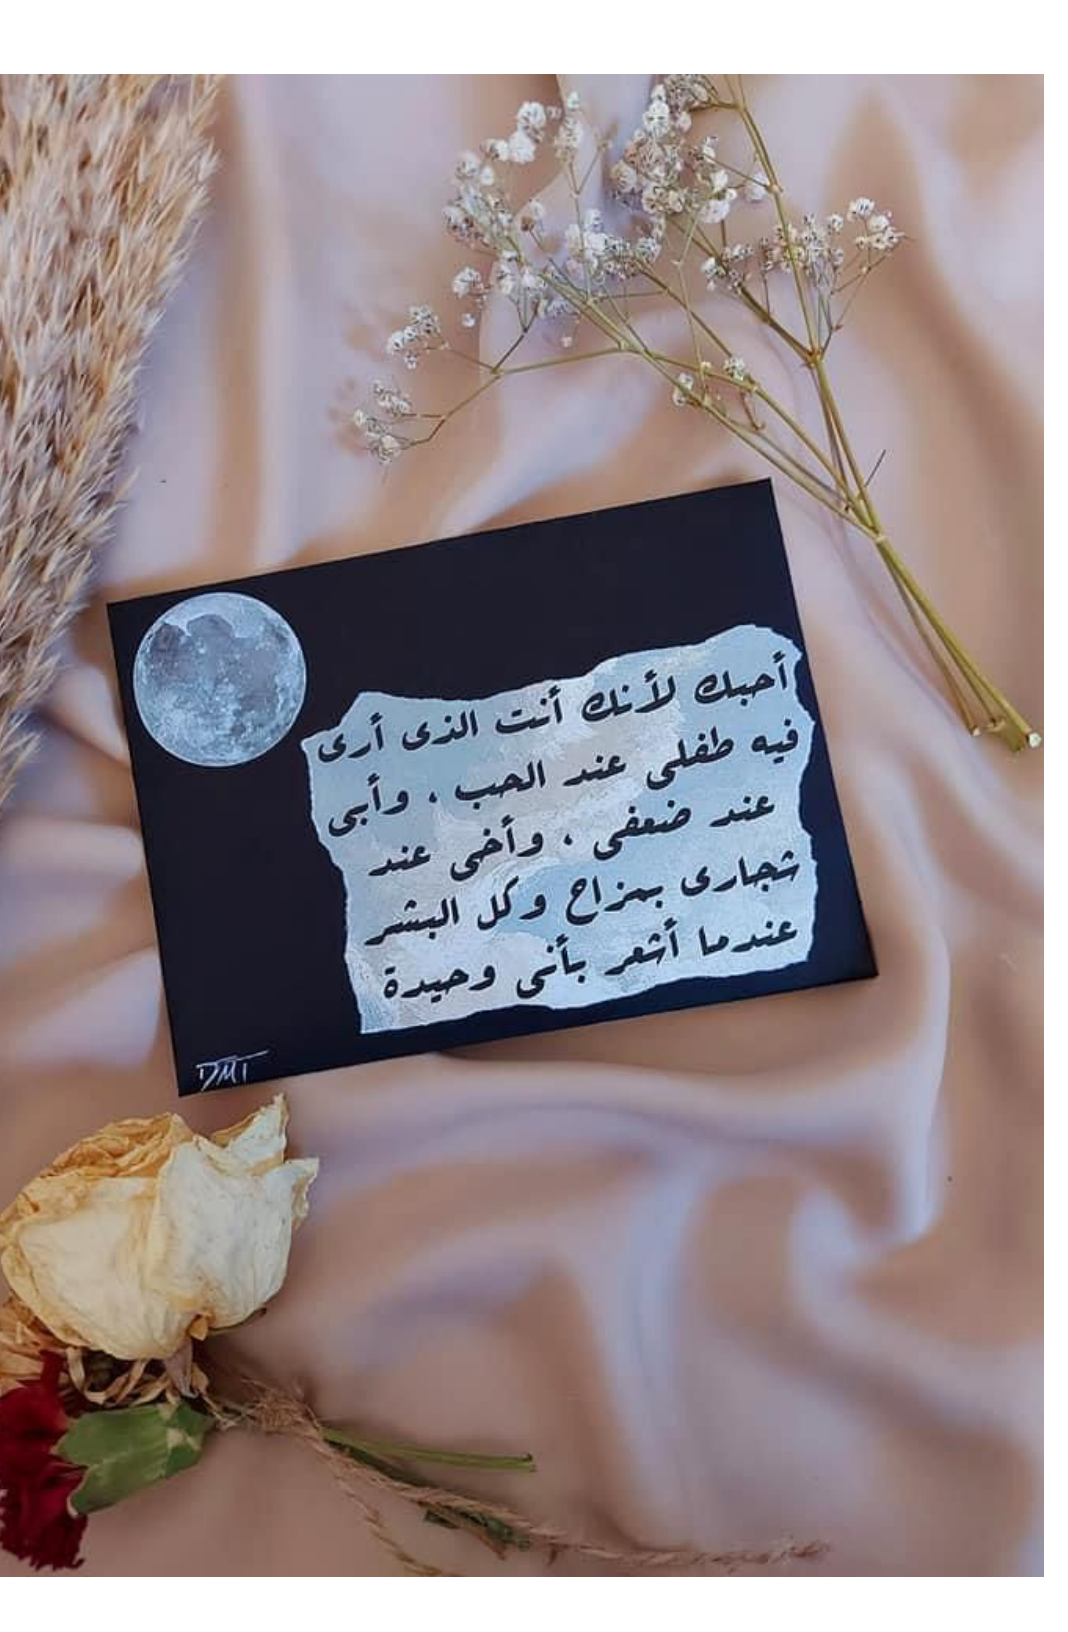 أحبك لأنك أنت الذى أرى
فيه طفلى عند الحب ، وأبى
عند ضعفى ، وأخى عند
شجارى بمزاح وكل البشر
عندما أشعر بأنى وحيدة
DMT